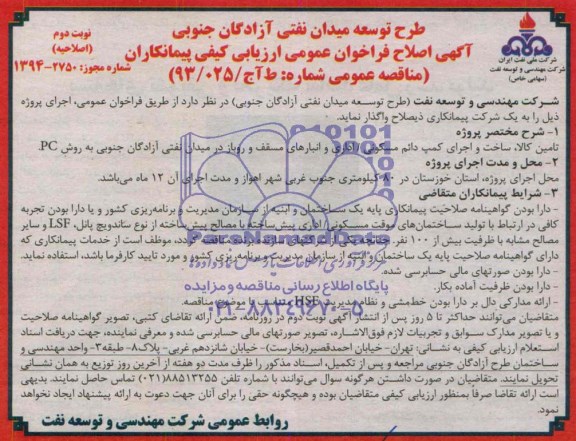 طرح توسعه میدان نفتی آزادگان جنوبی
آگهی اصلاح فراخوان عمومی ارزیابی کیفی پیمانکاران
(مناقصه عمومی شماره: ط‌آج/۹۳/۰۲۵)
نوبت دوم
(اصلاحیه)
شماره مجوز: ۲۷۵۰-۱۳۹۴
شرکت ملی نفت ایران
شرکت مهندسی و توسعه نفت
(سهامی خاص)
شرکت مهندسی و توسعه نفت (طرح توسعه میدان نفتی آزادگان جنوبی) در نظر دارد از طریق فراخوان عمومی، اجرای پروژه
ذیل را به یک شرکت پیمانکاری ذیصلاح واگذار نماید.
۱- شرح مختصر پروژه
تامین کالا، ساخت و اجرای کمپ دائم مسکونی / اداری و انبارهای مسقف و روباز در میدان نفتی آزادگان جنوبی به روش PC.
۲- محل و مدت اجرای پروژه
محل اجرای پروژه، استان خوزستان در ۸۰ کیلومتری جنوب غربی شهر اهواز و مدت اجرای آن ۱۲ ماه می‌باشد.
۳- شرایط پیمانکاران متقاضی
- دارا بودن گواهینامه صلاحیت پیمانکاری پایه یک ساختمان و ابنیه از سازمان مدیریت و برنامه‌ریزی کشور و یا دارا بودن تجربه
کافی در ارتباط با تولید ساختمان‌های موقت مسکونی/اداری پیش‌ساخته با مصالح پیش‌ساخته از نوع ساندویچ پانل، LSF و سایر
مصالح مشابه با ظرفیت بیش از ۱۰۰ نفر. چنانچه گردد، موظف است از خدمات پیمانکاری که
دارای گواهینامه صلاحیت پایه یک ساختمان و ابنیه از سازمان مدیریت و برنامه‌ریزی کشور و مورد تایید کارفرما باشد، استفاده نماید.
- دارا بودن صورتهای مالی حسابرسی شده.
- دارا بودن ظرفیت آماده بکار.
- ارائه مدارکی دال بر دارا بودن خط‌مشی و نظام مدیریت HSE متناسب با موضوع مناقصه.
متقاضیان می‌توانند حداکثر تا ۵ روز پس از انتشار آگهی نوبت دوم در روزنامه، ضمن ارائه تقاضای کتبی، تصویر گواهینامه صلاحیت
و یا تصویر مدارک سوابق و تجربیات لازم فوق‌الاشاره، تصویر صورتهای مالی حسابرسی شده و معرفی نماینده، جهت دریافت اسناد
استعلام ارزیابی کیفی به نشانی: تهران- خیابان احمدقصیر(بخارست)- خیابان شانزدهم غربی- پلاک۸- طبقه۳- واحد مهندسی و
ساختمان طرح آزادگان جنوبی مراجعه و پس از تکمیل، اسناد مذکور را ظرف مدت دو هفته از آخرین روز توزیع به همان نشانی
تحویل نمایند. متقاضیان در صورت داشتن هرگونه سوال می‌توانند با شماره تلفن ۸۸۵۱۳۲۵۵(۰۲۱) تماس حاصل نمایند. بدیهی
است ارائه تقاضا صرفاً بمنظور ارزیابی کیفی متقاضیان بوده و هیچگونه حقی را برای آنان جهت دعوت به ارائه پیشنهاد ایجاد نخواهد
نمود.
روابط عمومی شرکت مهندسی و توسعه نفت
پایگاه اطلاع رسانی مناقصه و مزایده
۰۲۱-۸۸۳۴۹۶۷۰-۵